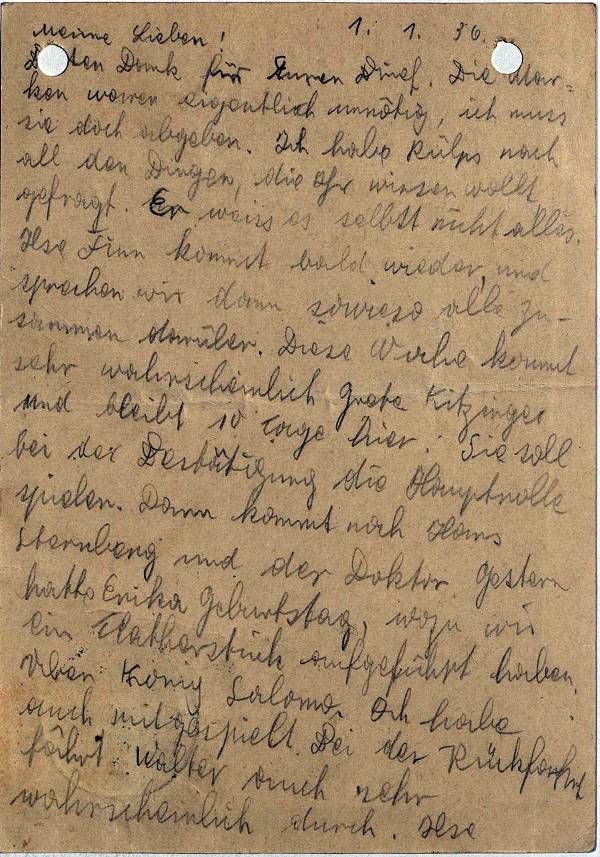 Meine Lieben! 1. 1. 36.
Besten Dank für Euren Brief. Die Mar-
ken waren eigentlich unnötig, ich muss
sie doch abgeben. Ich habe Külps nach
all den Dingen, die Ihr wissen wollt,
gefragt. Er weiss es selbst nicht alles.
Ilse Finn kommt bald wieder, und
sprechen wir dann sowieso alle zu-
sammen darüber. Diese Woche kommt
sehr wahrscheinlich Grete Kitzinger
und bleibt 10 Tage hier. Sie soll
bei der Bestätigung die Hauptrolle
spielen. Dann kommt noch Hans
Sternberg und der Doktor. Gestern
hatte Erika Geburtstag, wozu wir
ein Theaterstück aufgeführt haben,
über König Salomo. Ich habe
auch mitgespielt. Bei der Rückfahrt
fährt Walter auch sehr
wahrscheinlich durch. Ilse